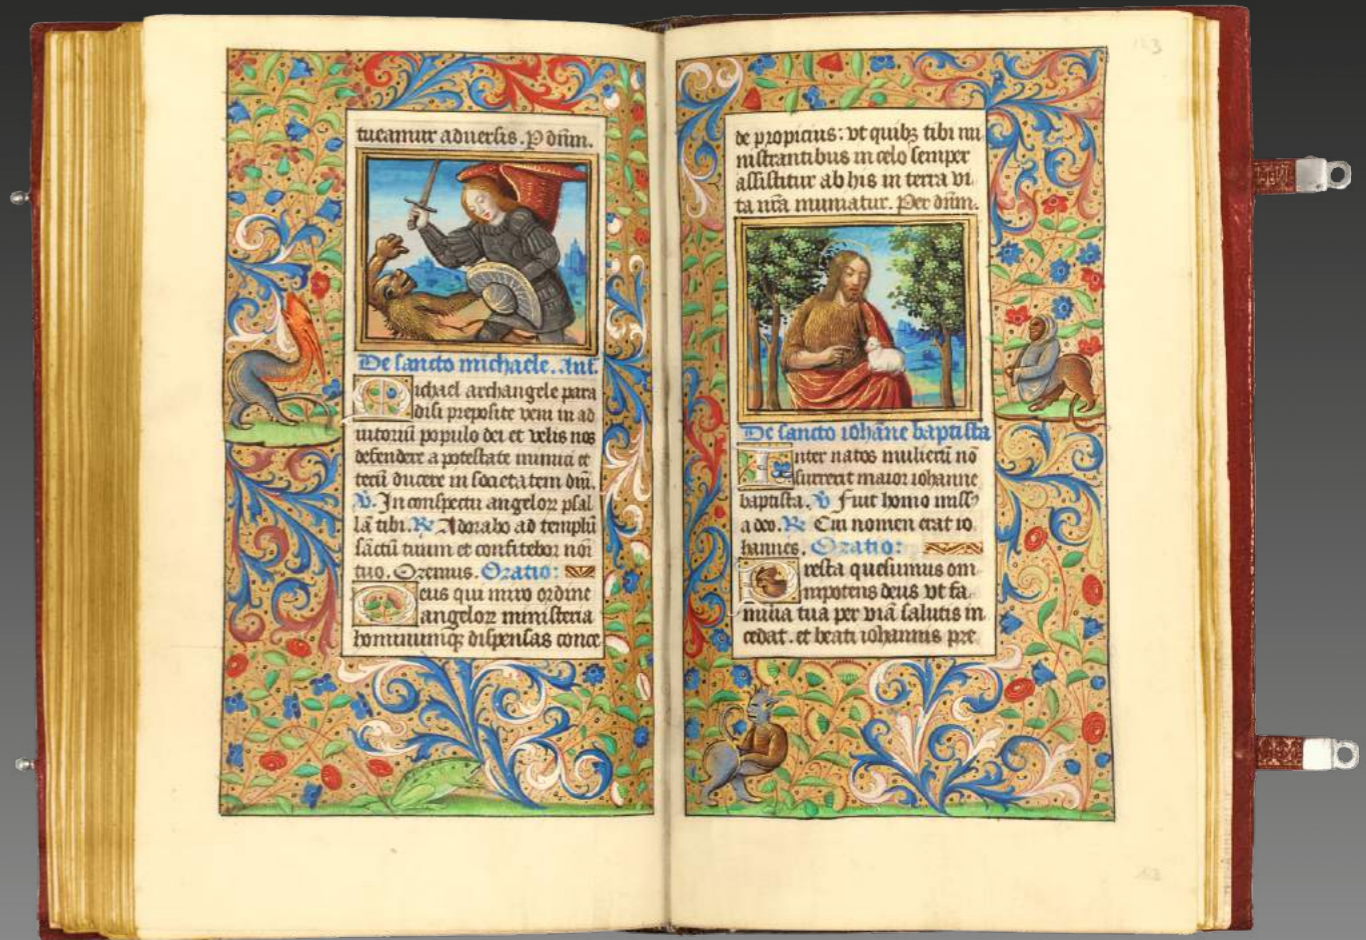 tueamur adversis. P dñm.
De sancto michaele. Ant.
Michael archangele para
disi preposite veni in ad
iutoriū populo dei et velis nos
defendere a potestate inimici et
tecū ducere in societatem dñi.
V. In conspectu angeloꝝ psal
lā tibi. R Adorabo ad templū
sāctū tuum et confitebor noı̄
tuo. Oremus. Oratio:
Deus qui miro ordine
angeloꝝ ministeria
hominumqꝫ dispensas conce
de propicius: vt quibꝫ tibi mi
nistrantibus in celo semper
assistitur ab his in terra vi
ta nr̄a muniatur. Per dñm.
De sancto iohāne baptista
Inter natos mulierū nō
surrexit maior iohanne
baptista. V Fuit homo missꝰ
a deo. R Cui nomen erat io
hannes. Oratio:
Presta quesumus om
nipotens deus vt fa
milia tua per viā salutis in
cedat. et beati iohannis pre
153